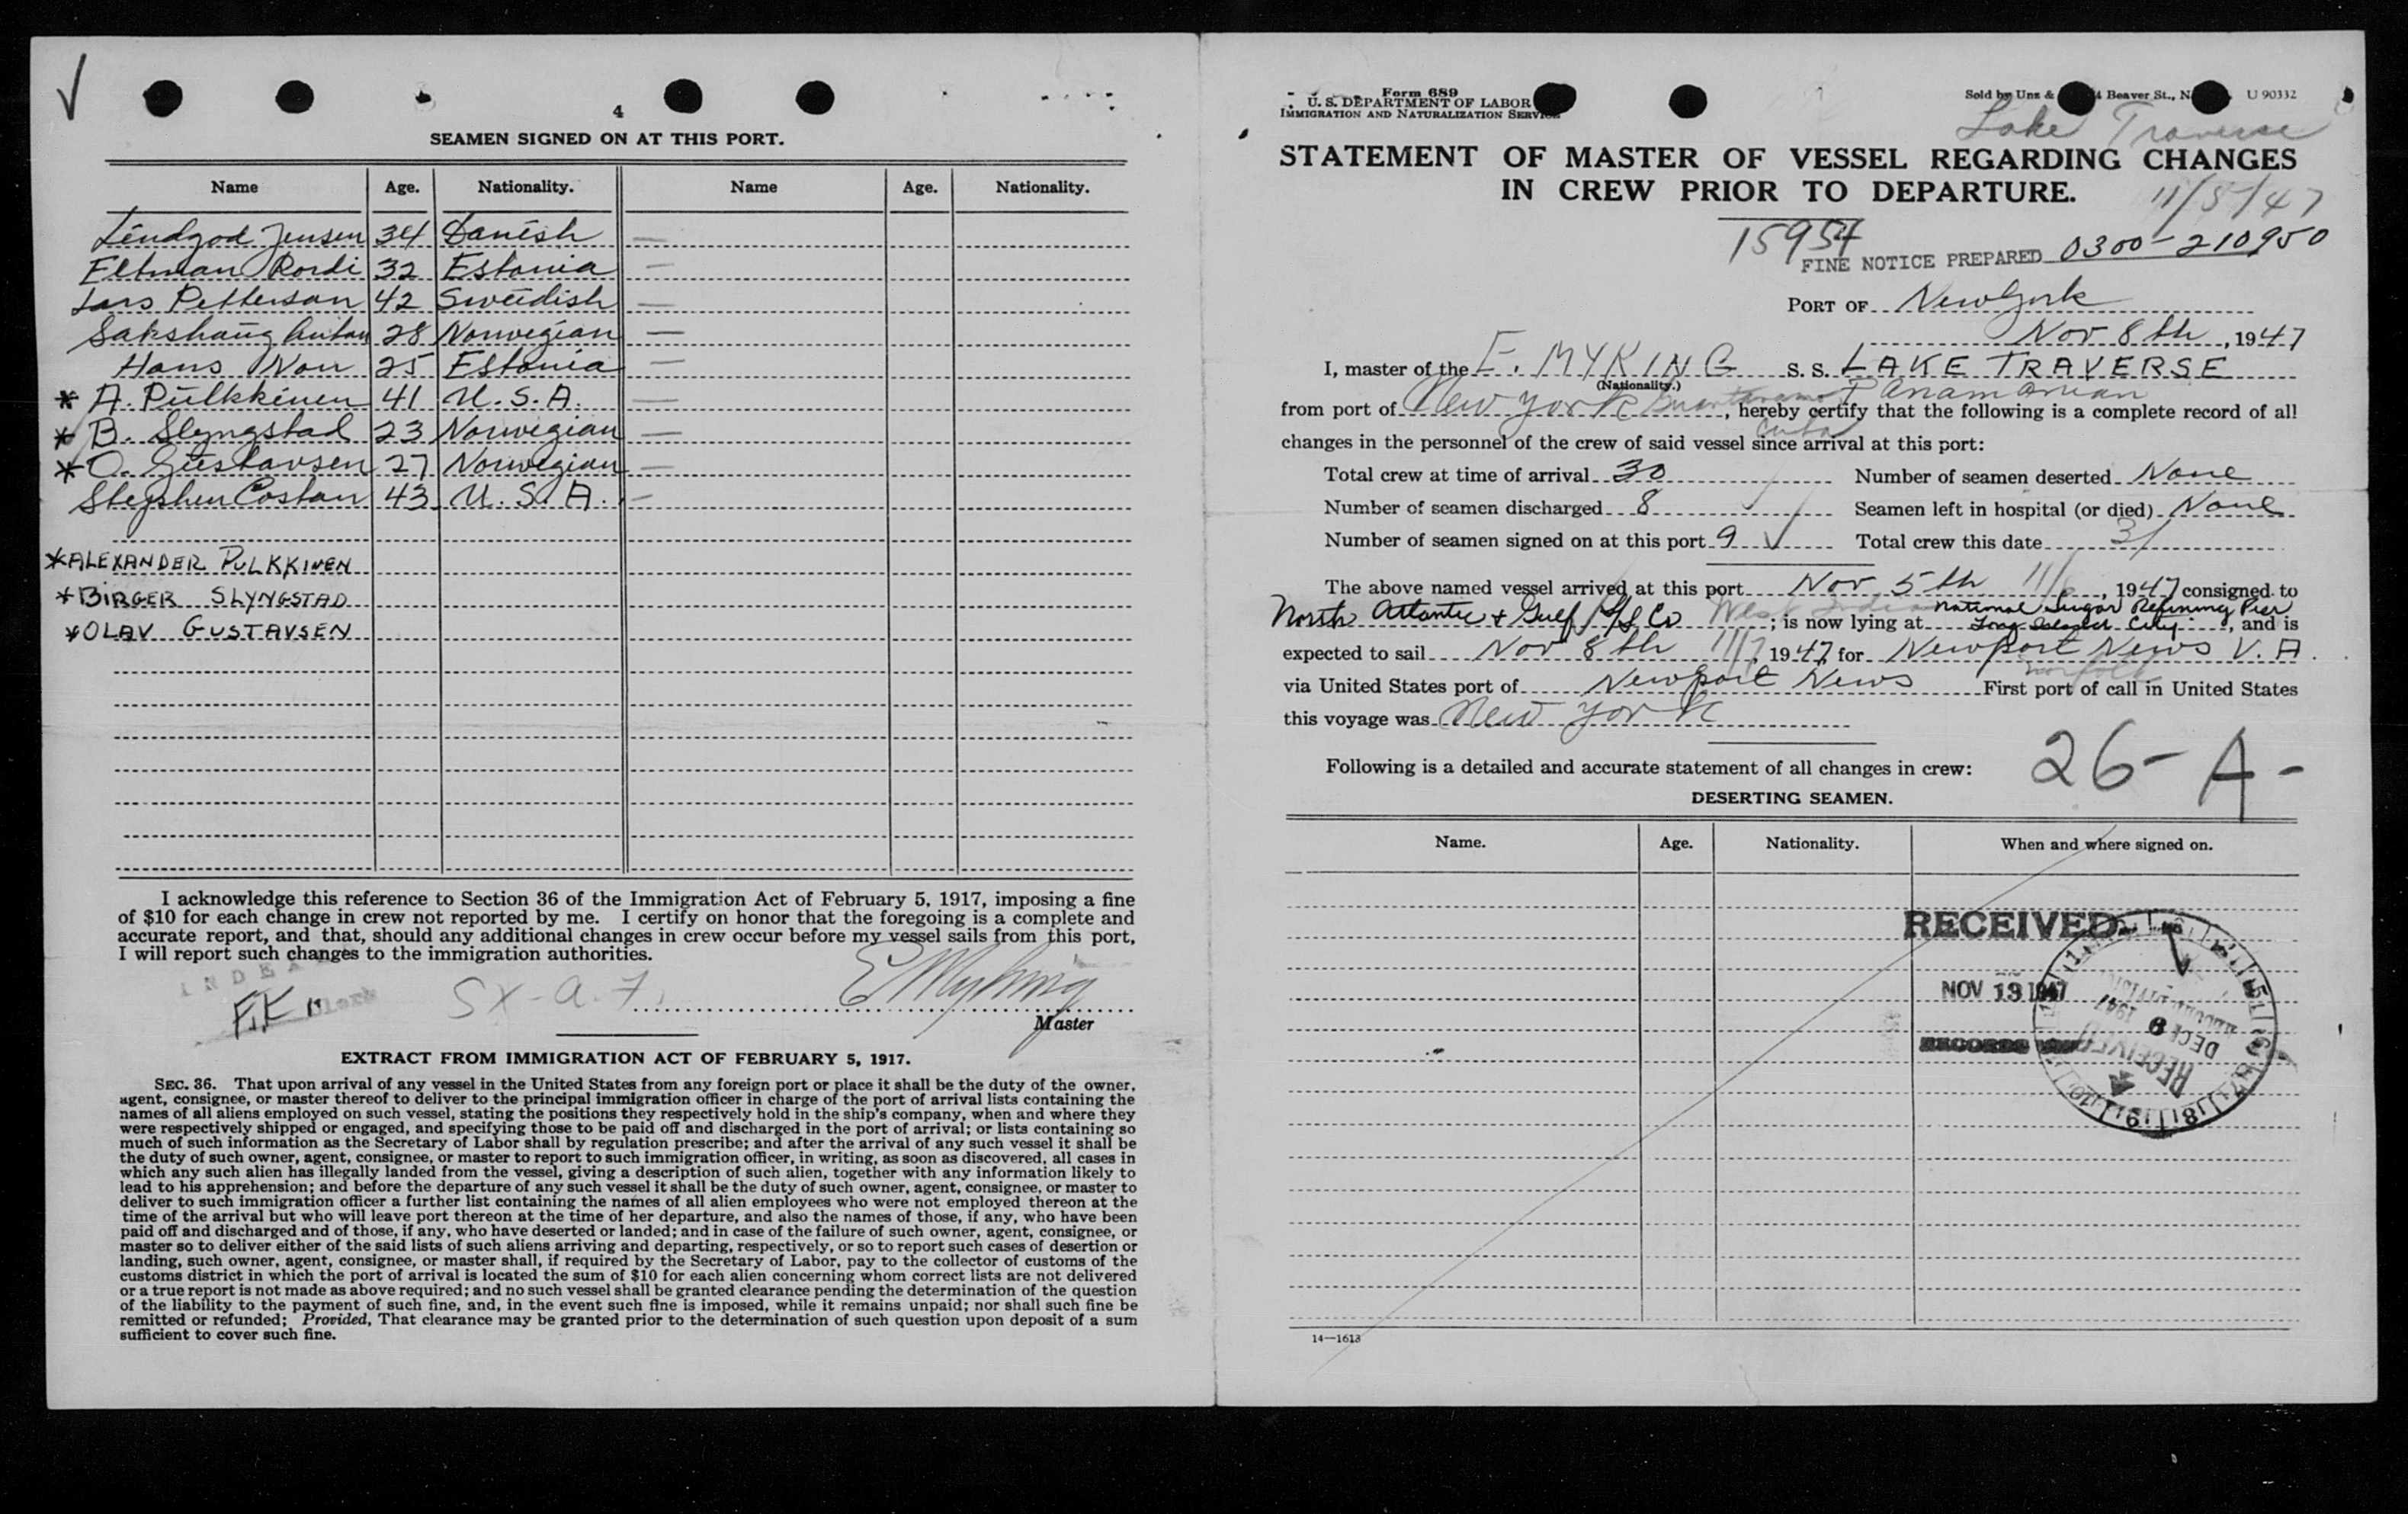 4
SEAMEN SIGNED ON AT THIS PORT.
Name Age. Nationality. Name Age. Nationality.
Lindgod Jensen 34 Danish —
Eltman Rordi 32 Estonia —
Lars Petterson 42 Swedish —
Sakshaug Anton 28 Norwegian —
Hans Nou 25 Estonia —
* A. Pulkkinen 41 U.S.A. —
* B. Slyngstad 23 Norwegian —
* O. Gustavsen 27 Norwegian —
Stephen Costan 43 U.S.A. —
* ALEXANDER PULKKINEN
* BIRGER SLYNGSTAD
* OLAV GUSTAVSEN
I acknowledge this reference to Section 36 of the Immigration Act of February 5, 1917, imposing a fine
of $10 for each change in crew not reported by me. I certify on honor that the foregoing is a complete and
accurate report, and that, should any additional changes in crew occur before my vessel sails from this port,
I will report such changes to the immigration authorities.
SX-a.7. E Myking
Master
EXTRACT FROM IMMIGRATION ACT OF FEBRUARY 5, 1917.
SEC. 36. That upon arrival of any vessel in the United States from any foreign port or place it shall be the duty of the owner,
agent, consignee, or master thereof to deliver to the principal immigration officer in charge of the port of arrival lists containing the
names of all aliens employed on such vessel, stating the positions they respectively hold in the ship's company, when and where they
were respectively shipped or engaged, and specifying those to be paid off and discharged in the port of arrival; or lists containing so
much of such information as the Secretary of Labor shall by regulation prescribe; and after the arrival of any such vessel it shall be
the duty of such owner, agent, consignee, or master to report to such immigration officer, in writing, as soon as discovered, all cases in
which any such alien has illegally landed from the vessel, giving a description of such alien, together with any information likely to
lead to his apprehension; and before the departure of any such vessel it shall be the duty of such owner, agent, consignee, or master to
deliver to such immigration officer a further list containing the names of all alien employees who were not employed thereon at the
time of the arrival but who will leave port thereon at the time of her departure, and also the names of those, if any, who have been
paid off and discharged and of those, if any, who have deserted or landed; and in case of the failure of such owner, agent, consignee, or
master so to deliver either of the said lists of such aliens arriving and departing, respectively, or so to report such cases of desertion or
landing, such owner, agent, consignee, or master shall, if required by the Secretary of Labor, pay to the collector of customs of the
customs district in which the port of arrival is located the sum of $10 for each alien concerning whom correct lists are not delivered
or a true report is not made as above required; and no such vessel shall be granted clearance pending the determination of the question
of the liability to the payment of such fine, and, in the event such fine is imposed, while it remains unpaid; nor shall such fine be
remitted or refunded; Provided, That clearance may be granted prior to the determination of such question upon deposit of a sum
sufficient to cover such fine.
Form 689
U. S. DEPARTMENT OF LABOR
IMMIGRATION AND NATURALIZATION SERVICE
Sold by Unz & Beaver St., N. U 90332
Lake Traverse
STATEMENT OF MASTER OF VESSEL REGARDING CHANGES
IN CREW PRIOR TO DEPARTURE.
11/8/47
15954
FINE NOTICE PREPARED 0300-210950
PORT OF New York
Nov 8th, 1947
I, master of the E. MYKING S. S. LAKE TRAVERSE
(Nationality.) Panamanian
from port of New York Guantanamo, hereby certify that the following is a complete record of all
Cuba
changes in the personnel of the crew of said vessel since arrival at this port:
Total crew at time of arrival 30 Number of seamen deserted None
Number of seamen discharged 8 Seamen left in hospital (or died) None
Number of seamen signed on at this port 9 Total crew this date 31
The above named vessel arrived at this port Nov 5th 11/6, 1947 consigned to
North Atlantic & Gulf S/S Co West India; is now lying at National Sugar Refining Pier Long Island City, and is
expected to sail Nov 8th 11/7, 1947, for Newport News V.A.
Norfolk
via United States port of Newport News First port of call in United States
this voyage was New York
Following is a detailed and accurate statement of all changes in crew: 26-A-
DESERTING SEAMEN.
Name. Age. Nationality. When and where signed on.
RECEIVED
NOV 13 1947
RECORDS
RECEIVED
DEC 8
1947
14—1613